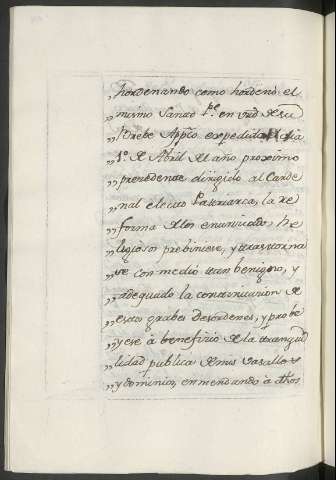 „hordenando como hordenó el
„mismo Santo Pe. en vrd de su
„Brebe Appco expedido el dia
„1º de Abril del año proximo
„prezedente dirigido al Carde
„nal electo Patriarca, la re
„forma de los enunciados Re
„ligiosos prebiniese, y atrastorna
„se con medio tan benigno, y
„adequado la continuacion de
„estos grabes desordenes, y probe
„yese à beneficio de la tranqui
„lidad publica de mis vasallos
„y dominios, enmendando à dhos